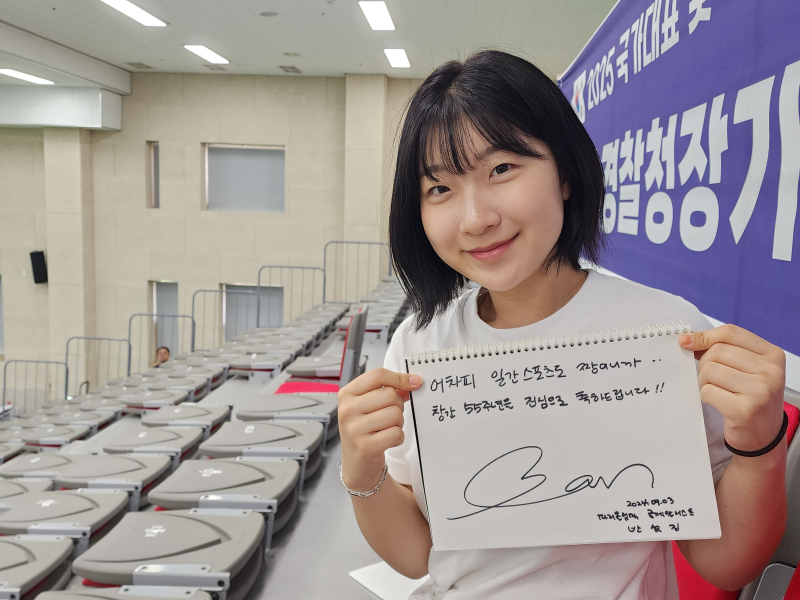 2025 국가대표 및
경찰청장기
어차피 일간스포츠도 짱이니까 ..
창간 55주년을 진심으로 축하드립니다!!
Ban
2024.09.03
파리올림픽 금메달리스트
반효진